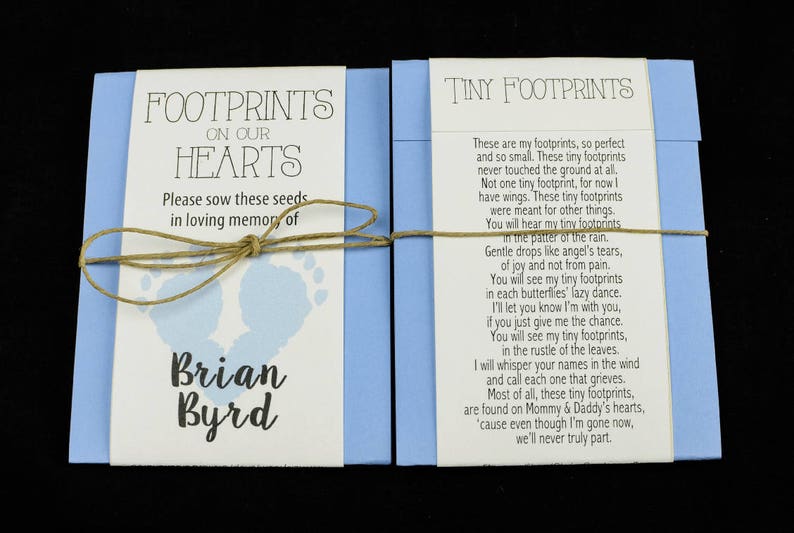 FOOTPRINTS
ON OUR
HEARTS
Please sow these seeds
in loving memory of
Brian
Byrd
TINY FOOTPRINTS
These are my footprints, so perfect
and so small. These tiny footprints
never touched the ground at all.
Not one tiny footprint, for now I
have wings. These tiny footprints
were meant for other things.
You will hear my tiny footprints
in the patter of the rain.
Gentle drops like angel's tears,
of joy and not from pain.
You will see my tiny footprints
in each butterflies' lazy dance.
I'll let you know I'm with you,
if you just give me the chance.
You will see my tiny footprints,
in the rustle of the leaves.
I will whisper your names in the wind
and call each one that grieves.
Most of all, these tiny footprints,
are found on Mommy & Daddy's hearts,
'cause even though I'm gone now,
we'll never truly part.